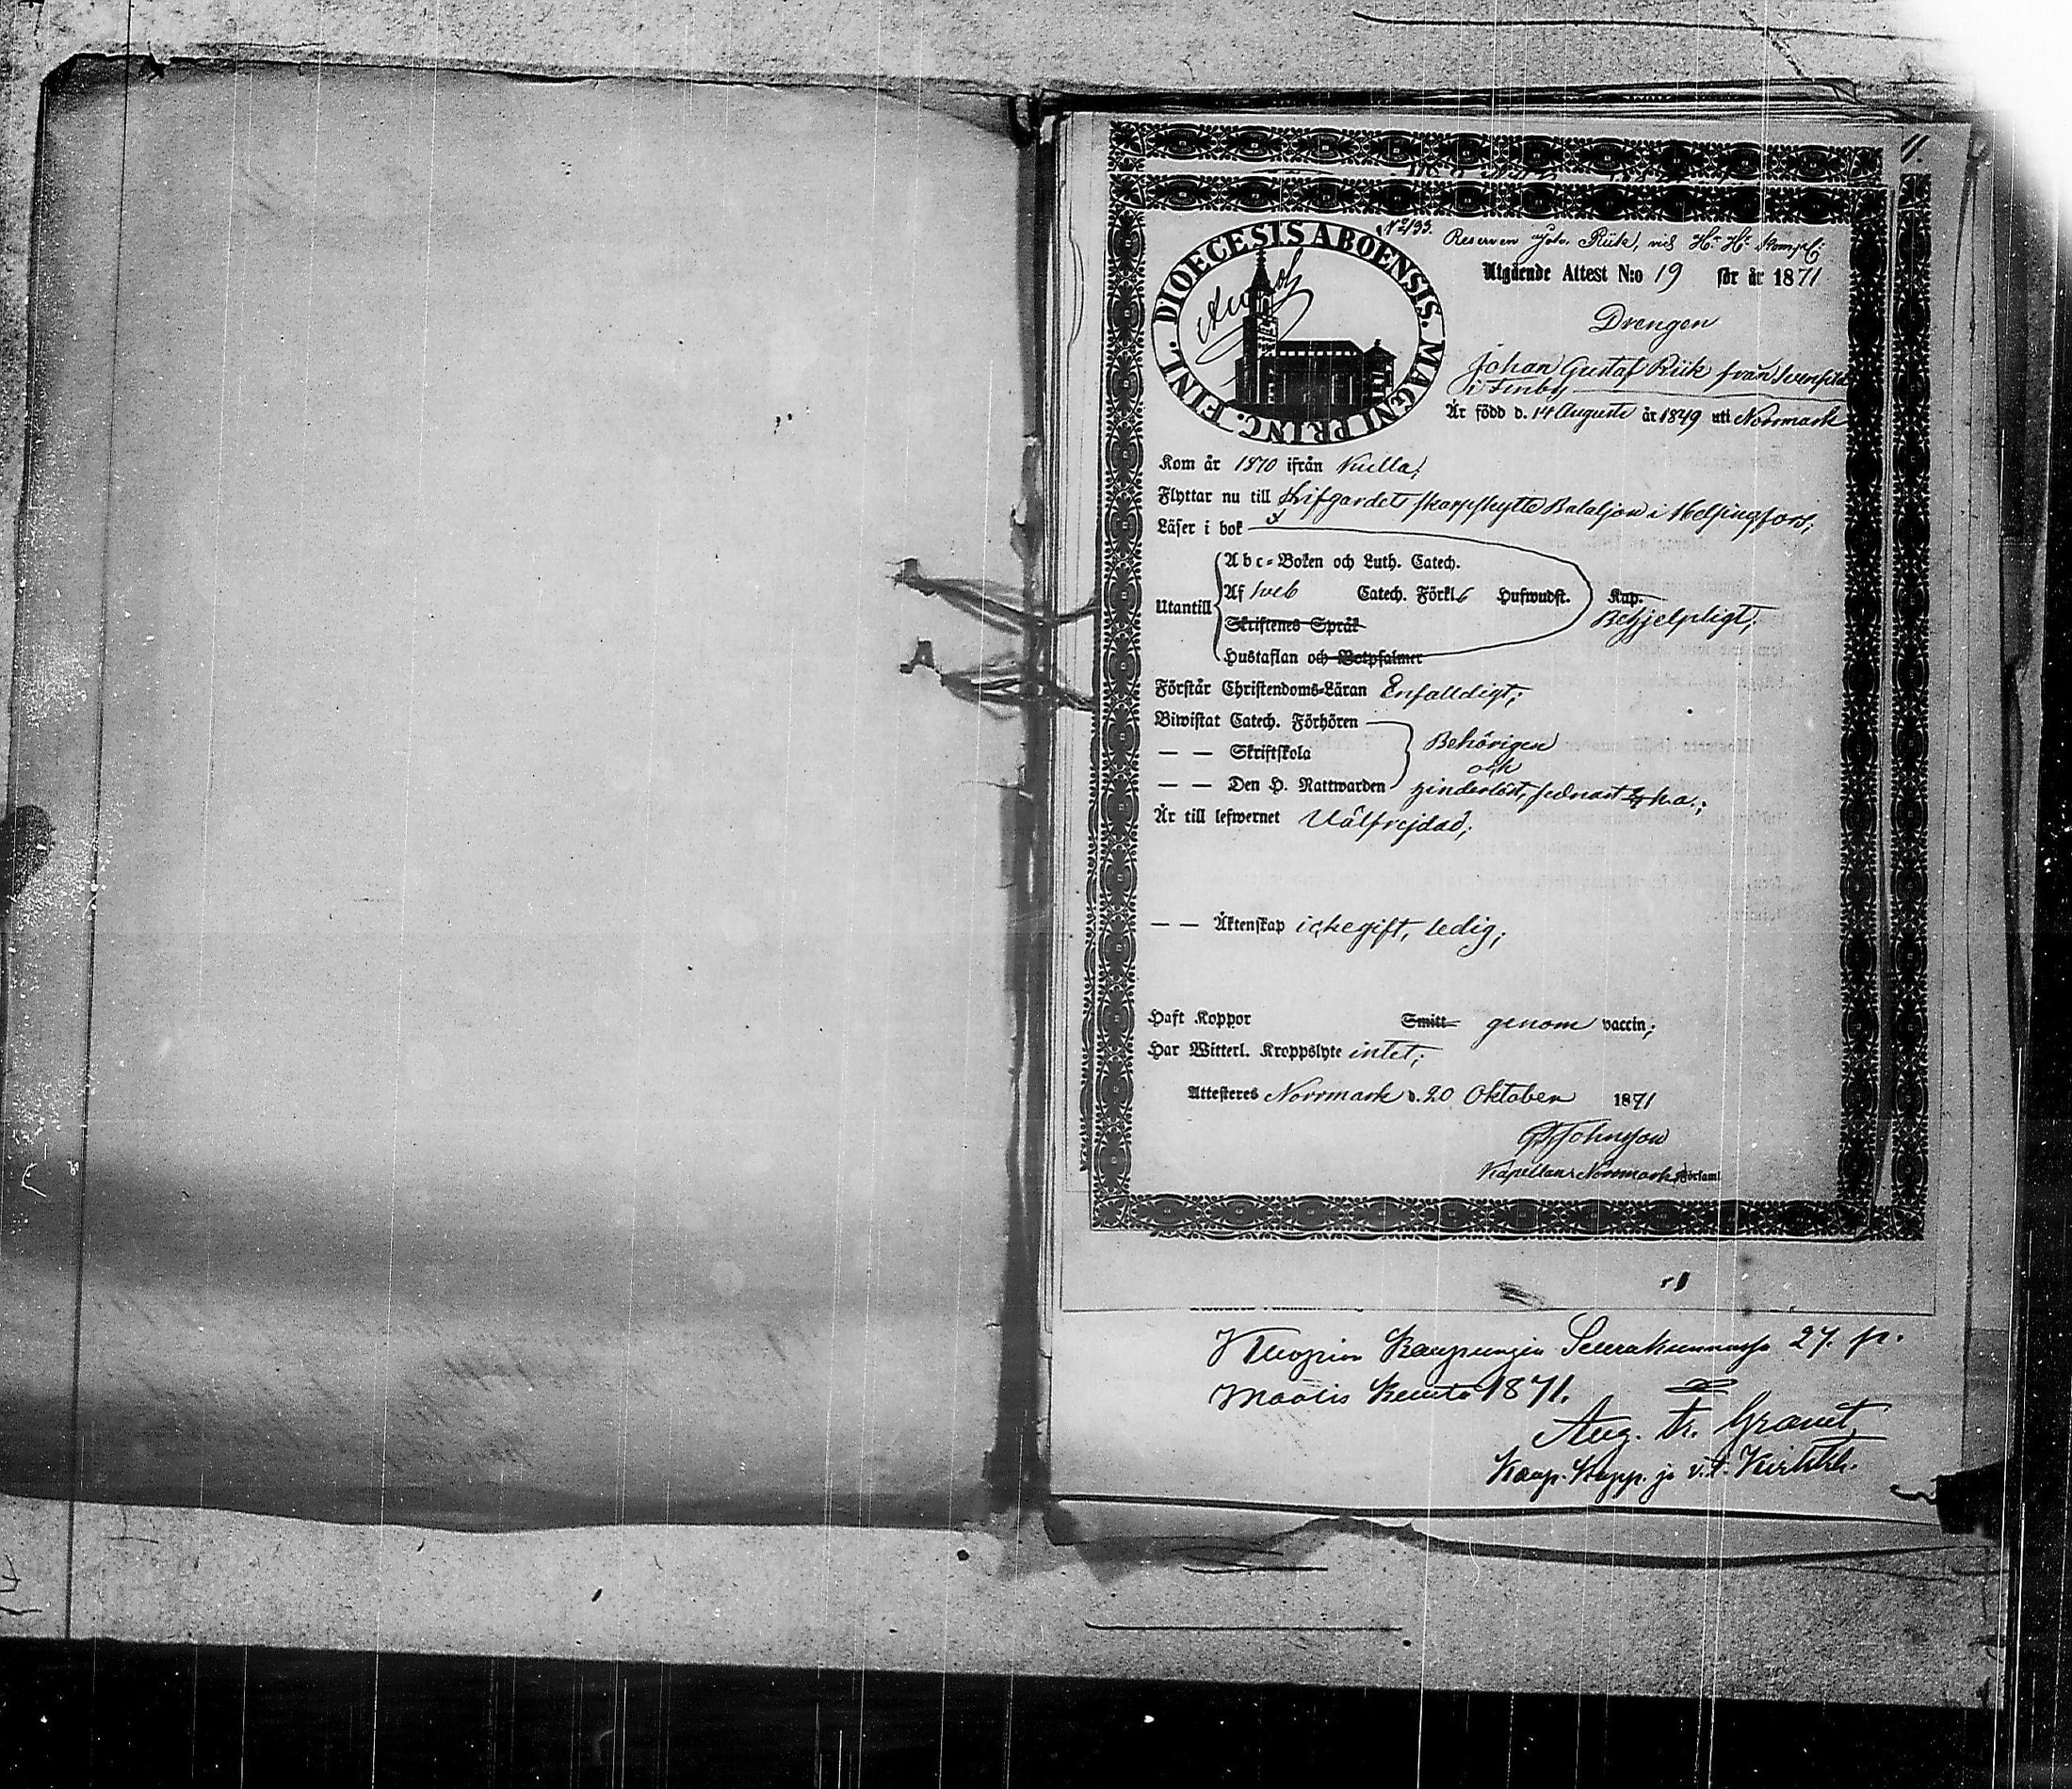 11.
№ 2/33.
Reserven Joh. Riik, vid H:r H:s Komp:;
Utgående Attest N:o 19 för år 1871
DIOECESIS ABOENSIS. MAGNI PRINC. FINL.
Drengen
Johan Gustaf Riik från
i Finby
Är född d. 14 Augusti år 1849 uti Norrmark
Kom år 1870 ifrån Kulla;
Flyttar nu till Lifgardets skarpskytte Bataljon i Helsingfors;
Läser i bok
Abc-Boken och Luth. Catech.
Utantill Af Sveb Catech. Förkl. 6 Hufwudst. Kap.
Behjelpligt;
Skriftenes Språk
Hustaflan och Botpsalmer
Förstår Christendoms-Läran Enfalldigt;
Biwistat Catech. Förhören
— — Skriftskola Behörigen
och
— — Den H. Nattwarden hinderlöst, sednast h.a.;
Är till lefwernet Välfrejdad;
— — Äktenskap icke gift, ledig;
Haft Koppor Smitt genom vaccin;
Har Witterl. Kroppslyte intet;
Attesteres Norrmark d. 20 Oktober 1871
Johnsson
Kapellan i Norrmark Församl
Kuopion Kaupungin Seurakunnassa 27. p.
Maalis Kuuta 1871.
Aug. Fr. Granit,
Kaup. Kapp. ja v.t. Kirkkh.